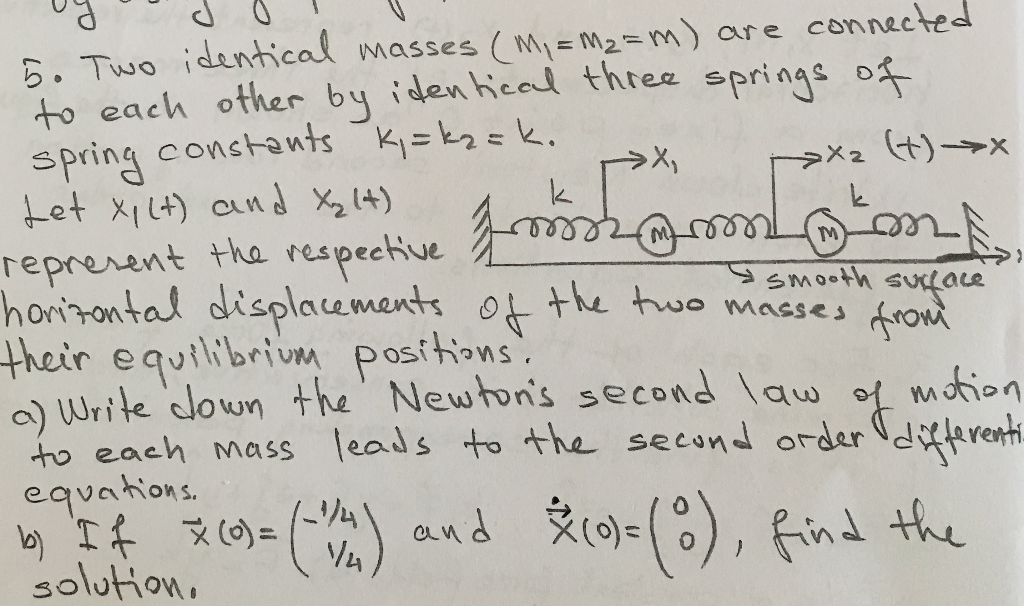 5. Two identical masses (m₁=m₂=m) are connected
to each other by identical three springs of
spring constants k₁=k₂=k.
Let x₁(t) and x₂(t)
represent the respective
horizontal displacements of the two masses from
their equilibrium positions.
k
x₁
x₂ (+)→x
k
m
m
smooth surface
a) Write down the Newton's second law of motion
to each mass leads to the second order differenti
equations.
b) If x⃗(0)=(-1/4 1/4) and ẋ⃗(0)=(0 0), find the
solution.